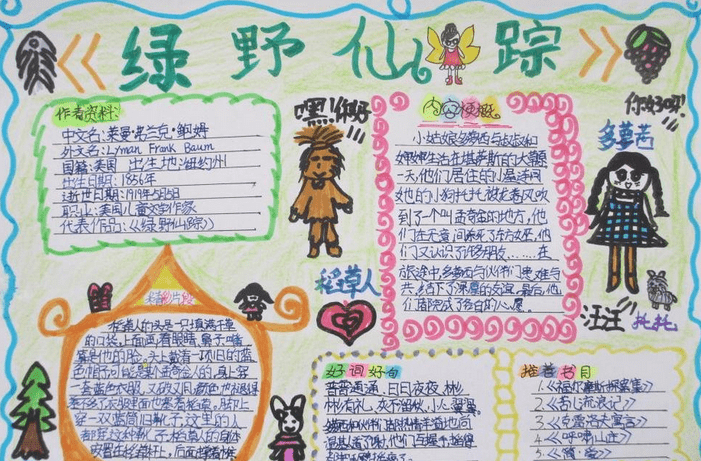 绿野仙踪
作者资料:
中文名:莱曼·弗兰克·鲍姆
外文名:Lyman Frank Baum
国籍:美国 出生地:纽约州
出生日期:1856年
逝世日期:1919年5月6日
职业:美国儿童文学作家
代表作品:《绿野仙踪》
嘿!你好
稻草人
内容梗概
小姑娘多萝西与叔叔和
婶婶生活在堪萨斯的大草原
一天,他们居住的小屋连同
她的小狗托托被龙卷风吹
到了一个叫奥兹国的地方,他
们在无意间杀死了东方女巫,他
们又认识了许多朋友………在
旅途中,多萝西与伙伴们患难与
共,结下了深厚的友谊,最后,他
们都完成了各自的心愿。
你好吗!
多萝茜
汪汪
托托
精彩片段
稻草人的头是一只填满干草
的口袋,上面画着眼睛、鼻子和嘴
算是他的脸。头上戴着一顶旧的蓝
色帽子
一套蓝色衣服,又破又旧,颜色也褪得
穿一双蓝筒旧靴子,这里的人
都穿这种靴子,稻草人的身体
好词好句
普普通通、日日夜夜、彬
彬有礼、灰不留秋、小心翼翼
推荐书目
1.《福尔摩斯探案集》
2.《苦儿流浪记》
3.《克雷洛夫寓言》
4.《呼啸山庄》
5.《简·爱》